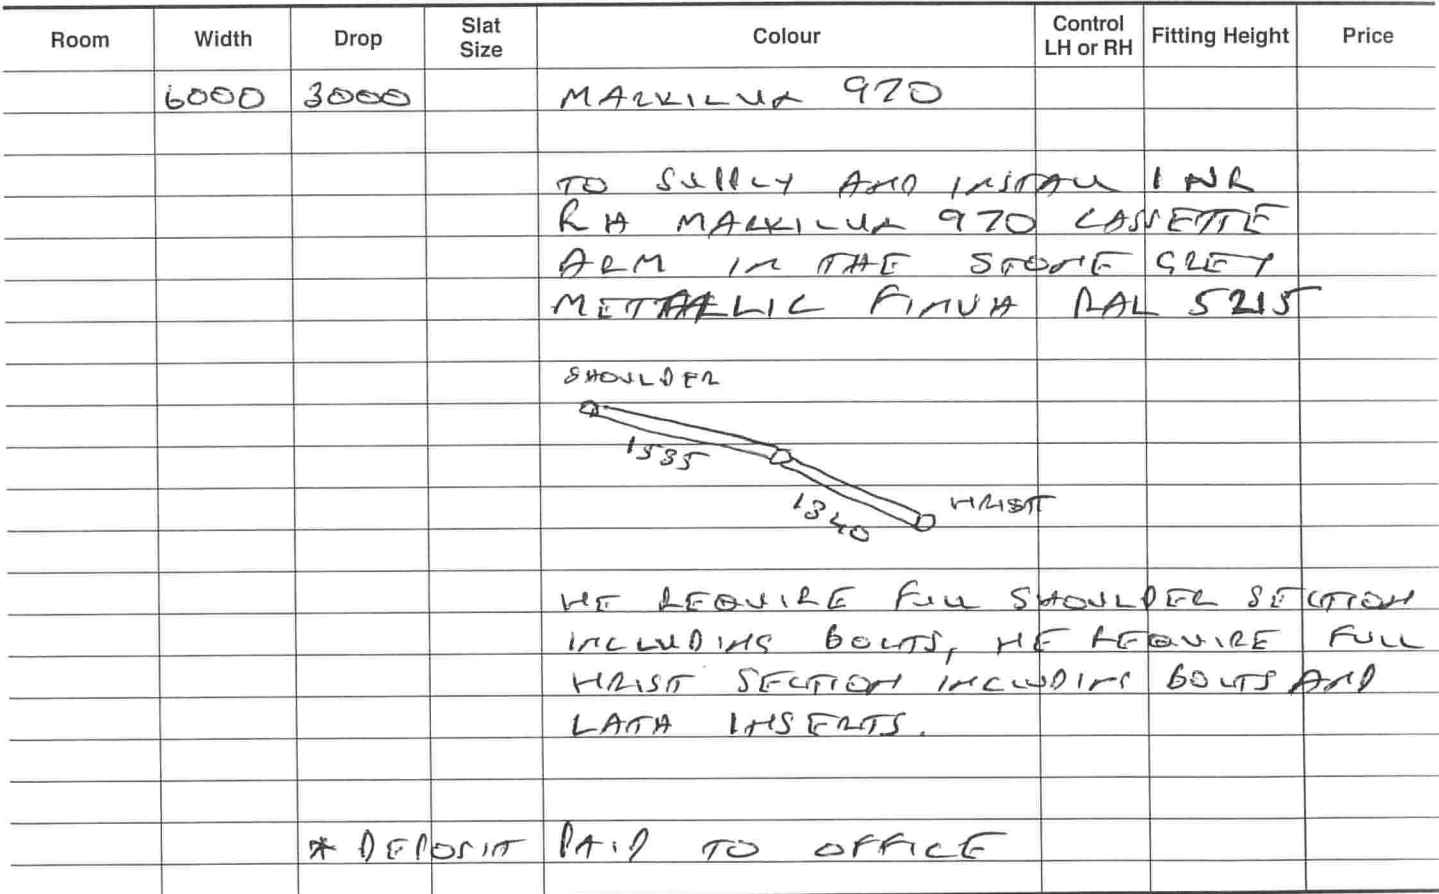 Room Width Drop Slat Size Colour Control LH or RH Fitting Height Price
6000 3000 MARKILUX 970
TO SUPPLY AND INSTALL 1 NR
RH MARKILUX 970 CASSETTE
ARM IN THE STONE GREY
METTALLIC FINISH RAL 5215
SHOULDER
1535
1340
WRIST
WE REQUIRE FULL SHOULDER SECTION
INCLUDING BOLTS, WE REQUIRE FULL
WRIST SECTION INCLUDING BOLTS AND
LATH INSERTS.
* DEPOSIT PAID TO OFFICE